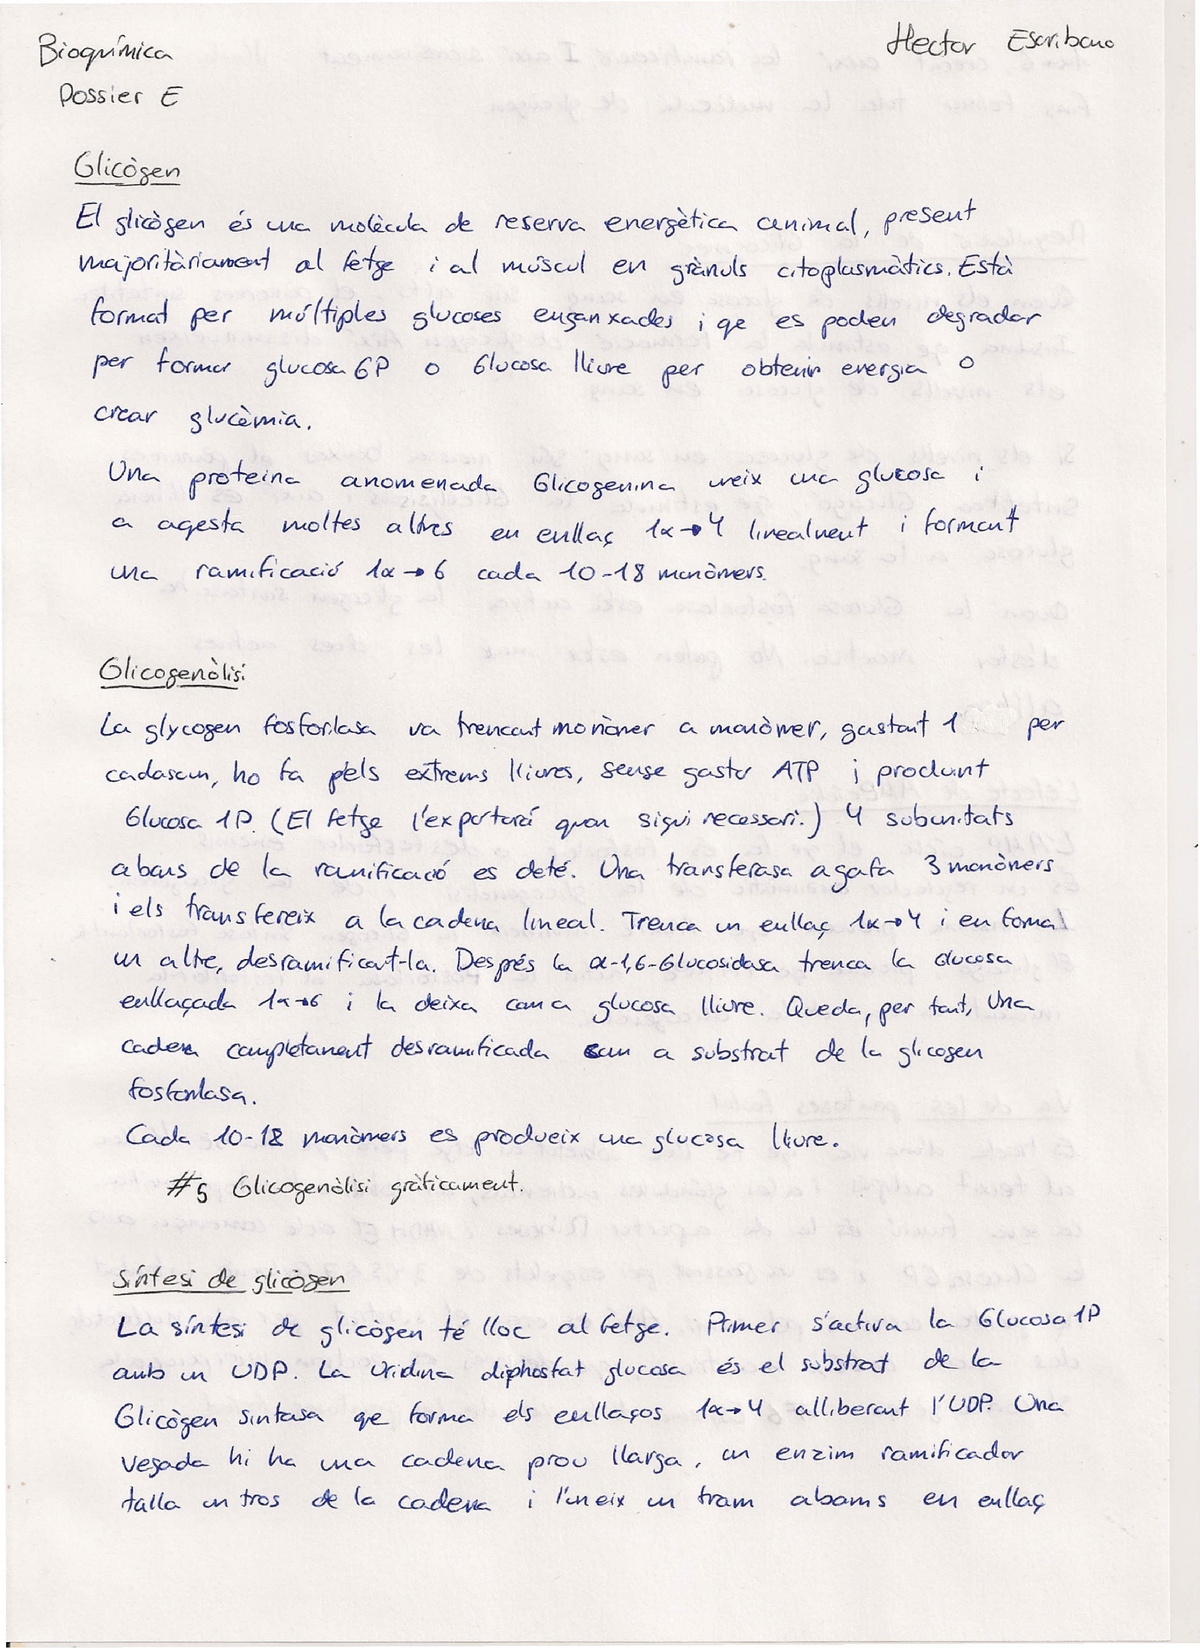 Bioquímica
Hector Escribano
Dossier E
Glicògen
El glicògen és una molècula de reserva energètica animal, present
majoritàriament al fetge i al múscul en grànuls citoplasmàtics. Està
format per múltiples glucoses enganxades i qe es poden degradar
per formar glucosa 6P o Glucosa lliure per obtenir energia o
crear glucèmia.
Una proteina anomenada Glicogenina uneix una glucosa i
a aqesta moltes altres en enllaç 1α→4 linealment i formant
una ramificació 1α→6 cada 10-18 monòmers.
Glicogenòlisi
La glycogen fosforilasa va trencant monòmer a monòmer, gastant 1 per
cadascun, ho fa pels extrems lliures, sense gastar ATP i produint
Glucosa 1P. (El fetge l'exportará quan sigui necessari.) 4 subunitats
abans de la ramificació es deté. Una transferasa agafa 3 monòmers
i els transfereix a la cadena lineal. Trenca un enllaç 1α→4 i en forma
un altre, desramificant-la. Després la α-1,6-Glucosidasa trenca la Glucosa
enllaçada 1α→6 i la deixa com a glucosa lliure. Queda, per tant, una
cadena completament desramificada com a substrat de la glicogen
fosforilasa.
Cada 10-18 monòmers es produeix una glucosa lliure.
#5 Glicogenòlisi gràficament.
Síntesi de glicògen
La síntesi de glicògen té lloc al fetge. Primer s'activa la Glucosa 1P
amb un UDP. La Uridina diphosfat glucosa és el substrat de la
Glicògen sintasa qe forma els enllaços 1α→4 alliberant l'UDP. Una
vegada hi ha una cadena prou llarga, un enzim ramificador
talla un tros de la cadena i l'uneix un tram abans en enllaç